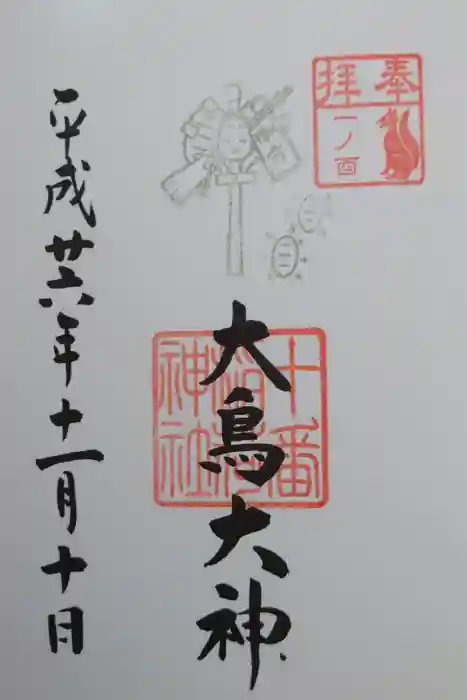 奉拝
一ノ酉
大鳥大神
十番稲荷神社
平成廿六年十一月十日